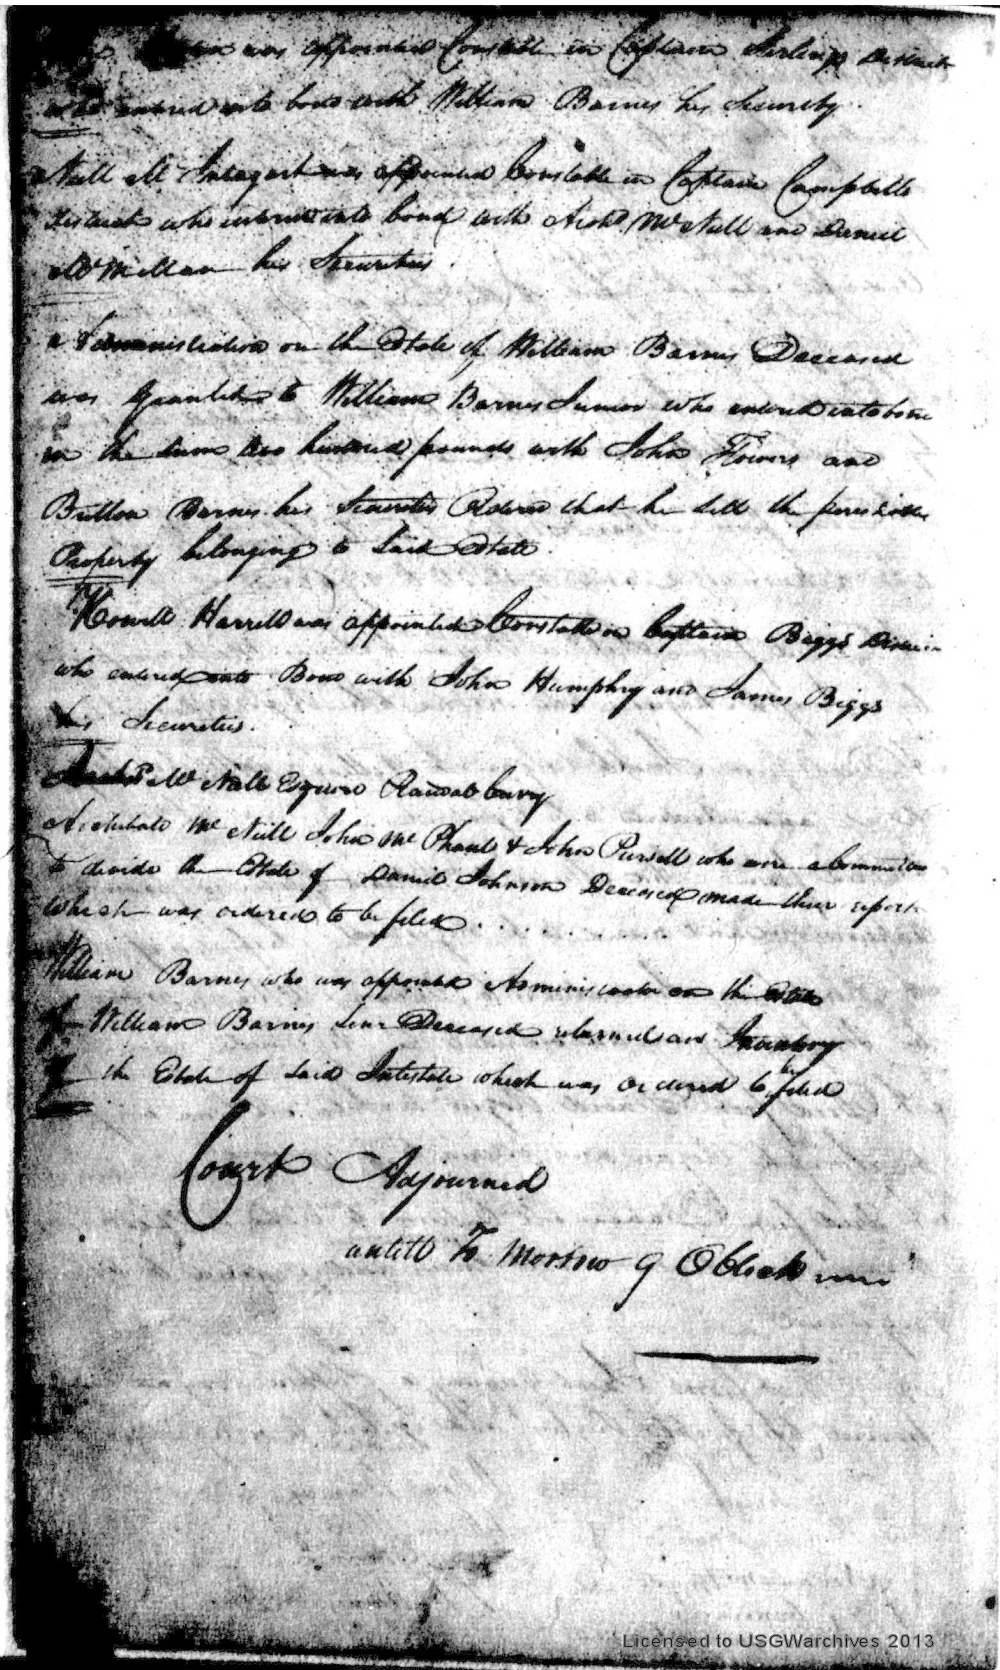 was appointed Constable in Captain Sterlings District
who entered into bond with William Barnes his Security.
Neill Mc Intagart was appointed Constable in Captain Campbells
District who entered into bond with Archd. McNeill and Daniel
McMillan his Securities.
administration on the Estate of William Barnes Deceased
was Granted to William Barnes Junior who entered into bond
in the sum two hundred pounds with John Flowers and
Britton Barnes his Securities Ordered that he Sell the perishable
Property belonging to Said Estate.
Howell Harrell was appointed Constable in Captain Biggs District
who entered into Bond with John Humphry and James Biggs
his Securities.
Mc Neill Esquire
Archibald McNeill John McPhaul & John Purcell who were a Commission
to devide the Estate of Daniel Johnson Deceased made their report
which was ordered to be filed . . . . . . .
William Barnes who was appointed Administrator on the Estate
William Barnes Senr Deceased returned an Inventory
of the Estate of Said Intestate which was ordered to be filed
Court Adjourned
untill To Morrow 9 OClock
Licensed to USGWarchives 2013